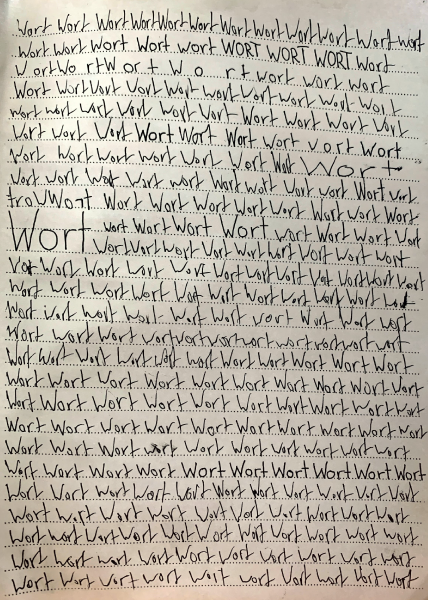 Wort Wort Wort Wort Wort Wort Wort Wort Wort Wort Wort Wort
Wort Wort Wort Wort wort WORT WORT WORT Wort
Wort Wort Wort W o r t wort wort wort
Wort Wort Wort Wort Wort Wort Wort Wort Wort Wort
wort wort Wort Wort Wort Wort Wort Wort Wort Wort
Wort Wort Wort Wort Wort Wort wort vort Wort
Wort Wort Wort Wort Wort Wort Wort Wort Wort
Wort Wort Wort Wort wort Wort Wort Wort wort Wort wort
troW Wort Wort Wort Wort Wort Wort Wort Wort Wort
Wort wort Wort Wort Wort wort Wort Wort Wort
Wort Wort Wort Wort Wort Wort Wort Wort Wort
Wort Wort Wort Wort Wort Wort Wort Wort Wort Wort Wort
Wort Wort Wort Wort Wort Wort Wort Wort Wort Wort
Wort Wort Wort Wort Wort Wort Wort Wort Wort Wort
Wort wort Wort wort wort wort wort wort wort wort
Wort Wort Wort Wort Wort wort Wort Wort Wort Wort
Wort Wort Wort Wort Wort Wort Wort Wort Wort
Wort Wort Wort Wort Wort Wort Wort Wort Wort Wort
Wort Wort Wort Wort Wort Wort Wort Wort Wort wort
Wort Wort Wort wort Wort Wort Wort Wort wort
Wort Wort Wort Wort Wort Wort Wort Wort Wort
Wort Wort Wort Wort Wort Wort Wort Wort Wort Wort
Wort wort Wort Wort Wort Wort Wort Wort Wort
Wort Wort Wort Wort Wort Wort Wort Wort wort wort
Wort Wort wort Wort Wort Wort Wort Wort wort
Wort Wort Wort wort Wort wort Wort wort Wort Wort